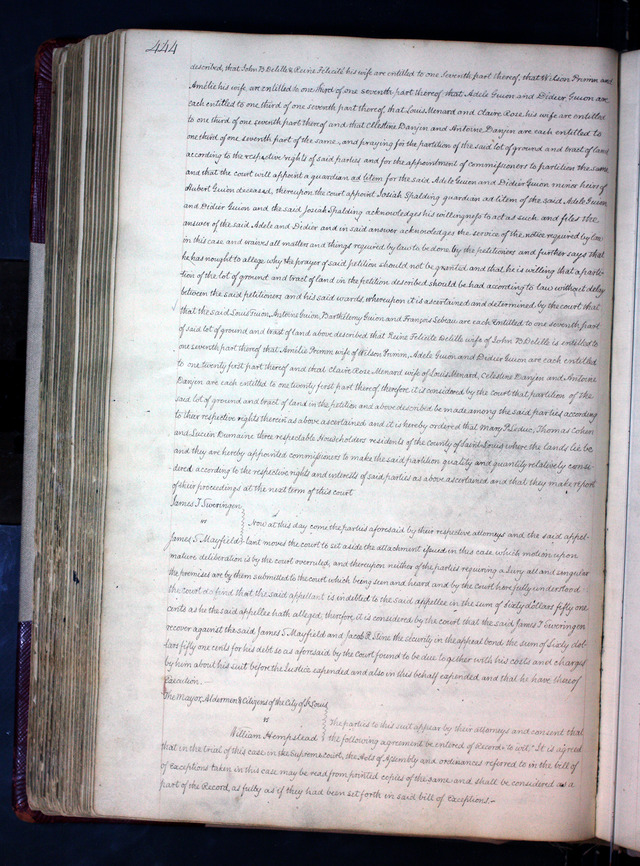 444
described, that John B Delille & Reine Felicité his wife are entitled to one Seventh part thereof, that Wilson Primm and
Amélie his wife, are entitled to one third of one seventh part thereof that Adele Guion and Didier Guion are
each entitled to one third of one seventh part thereof, that Louis Menard and Claire Rose, his wife are entitled
to one third of one seventh part thereof and that Celestine Danjen and Antoine Danjen are each entitled to
one third of one seventh part of the same, and praying for the partition of the said lot of ground and tract of land
according to the respective rights of said parties and for the appointment of commissioners to partition the same
and that the court will appoint a guardian ad litem for the said Adele Guion and Didier Guion minor heirs of
Hubert Guion deceased, thereupon the court appoint Josiah Spalding guardian ad litem of the said Adele Guion
and Didier Guion and the said Josiah Spalding acknowledges his willingness to act as such and files the
answer of the said Adele and Didier and in said answer acknowledges the service of the notice required by law
in this case and waives all matters and things required by law to be done by the petitioners and further says that
he has nought to allege why the prayer of said petition should not be granted and that he is willing that a parti-
tion of the lot of ground and tract of land in the petition described should be had according to law without delay
between the said petitioners and his said wards, whereupon it is ascertained and determined by the court that
that the said Louis Guion, Antoine Guion, Barthélemy Guion and François Lebeau are each Entitled to one seventh part
of said lot of ground and tract of land above described that Reine Felicité Delille wife of John B. Delille is entitled to
one seventh part thereof that Amélie Primm wife of Wilson Primm, Adele Guion and Didier Guion are each entitled
to one twenty first part thereof and that Claire Rose Menard wife of Louis Menard, Celestine Danjen and Antoine
Danjen are each entitled to one twenty first part thereof, therefore it is considered by the Court that partition of the
said lot of ground and tract of land in the petition and above described be made among the said parties according
to their respective rights therein as above ascertained and it is hereby ordered that Mary P. Leduc, Thomas Cohen
and Lucien Dumaine three respectable Householders residents of the County of Saint Louis, where the lands lie be
and they are hereby appointed commissioners to make the said partition quality and quantity relatively consi-
dered according to the respective rights and interests of said parties as above ascertained and that they make report
of their proceedings at the next term of this court
James T Sweringen
vs
Now at this day come the parties aforesaid by their respective attorneys and the said appel-
James S. Mayfield
lant moves the court to set aside the attachment issued in this case which motion upon
mature deliberation is by the court overruled, and thereupon neither of the parties requiring a Jury all and singular
the premises are by them submitted to the court which being seen and heard and by the Court here fully understood
the court do find that the said appellant is indebted to the said appellee in the sum of Sixty dollars fifty one
cents as he the said appellee hath alleged; therefore, it is considered by the court that the said James T Sweringen
recover against the said James S. Mayfield and Jacob R. Stine the security in the appeal bond the sum of Sixty dol-
lars fifty one cents for his debt so as aforesaid by the Court found to be due together with his costs and charges
by him about his suit before the Justice expended and also in this behalf expended and that he have thereof
Execution.—
The Mayor, Aldermen & Citizens of the City of St Louis
vs
The parties to this suit appear by their attorneys and consent that
William Hempstead
the following agreement be entered of Record; to wit, "It is agreed
that in the trial of this case in the Supreme court, the Acts of Assembly and ordinances referred to in the bill of
of Exceptions taken in this case may be read from printed copies of the same and shall be considered as a
part of the Record, as fully as if they had been set forth in said bill of Exceptions.—